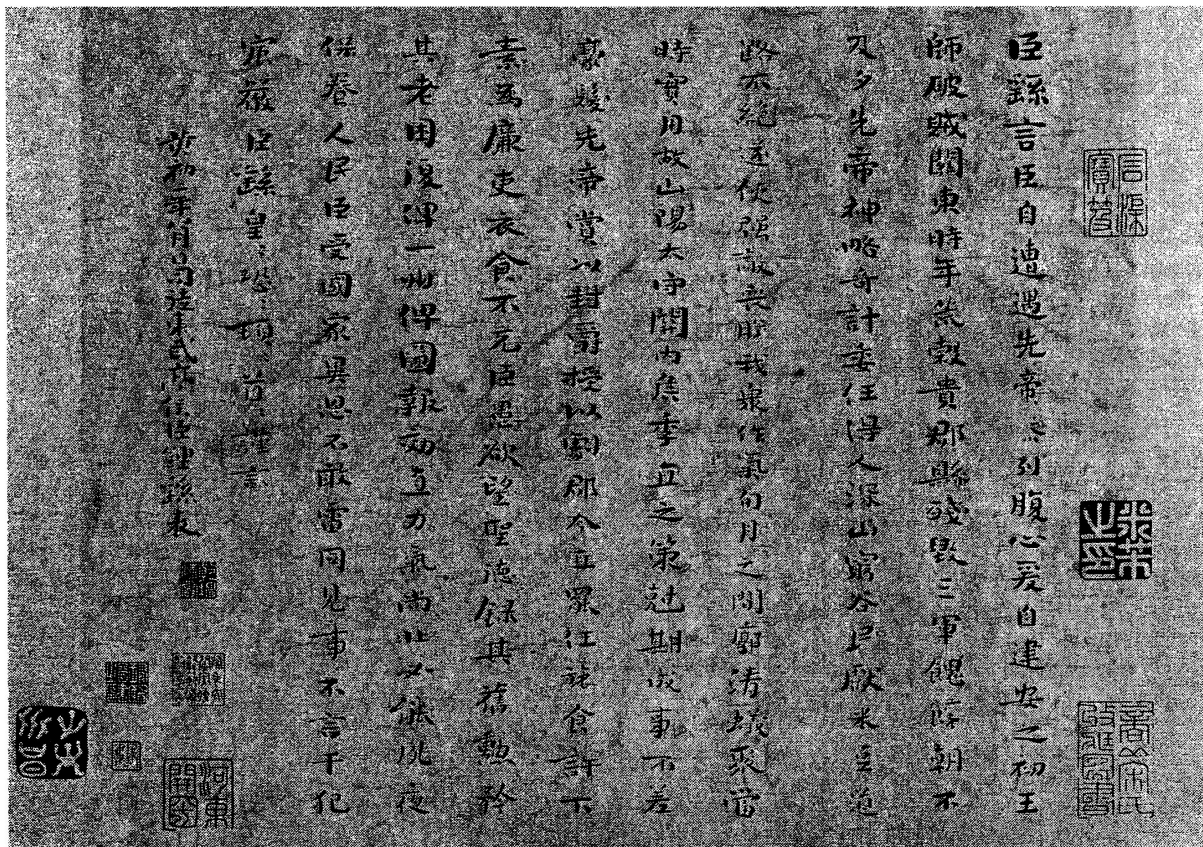 臣繇言臣自遭遇先帝忝列腹心爰自建安之初王
師破賊關東時年荒穀貴郡縣殘毀三軍餽饟朝不
及夕先帝神略奇計委任得人深山窮谷民獻米豆道
路不絕遂使强敵喪膽我衆作氣旬月之間廓清蟻聚當
時實用故山陽太守關內侯季直之策尅期成事不差
豪髮先帝賞以封爵授以劇郡今直罷任旅食許下
素爲廉吏衣食不充臣愚欲望聖德錄其舊勳矜
其老困復俾一州俾圖報効直力氣尚壯必能夙夜
保養人民臣受國家異恩不敢雷同見事不言干犯
宸嚴臣繇皇恐頓首謹言
黃初二年八月日司徒東武亭侯臣鍾繇表
米芾之印